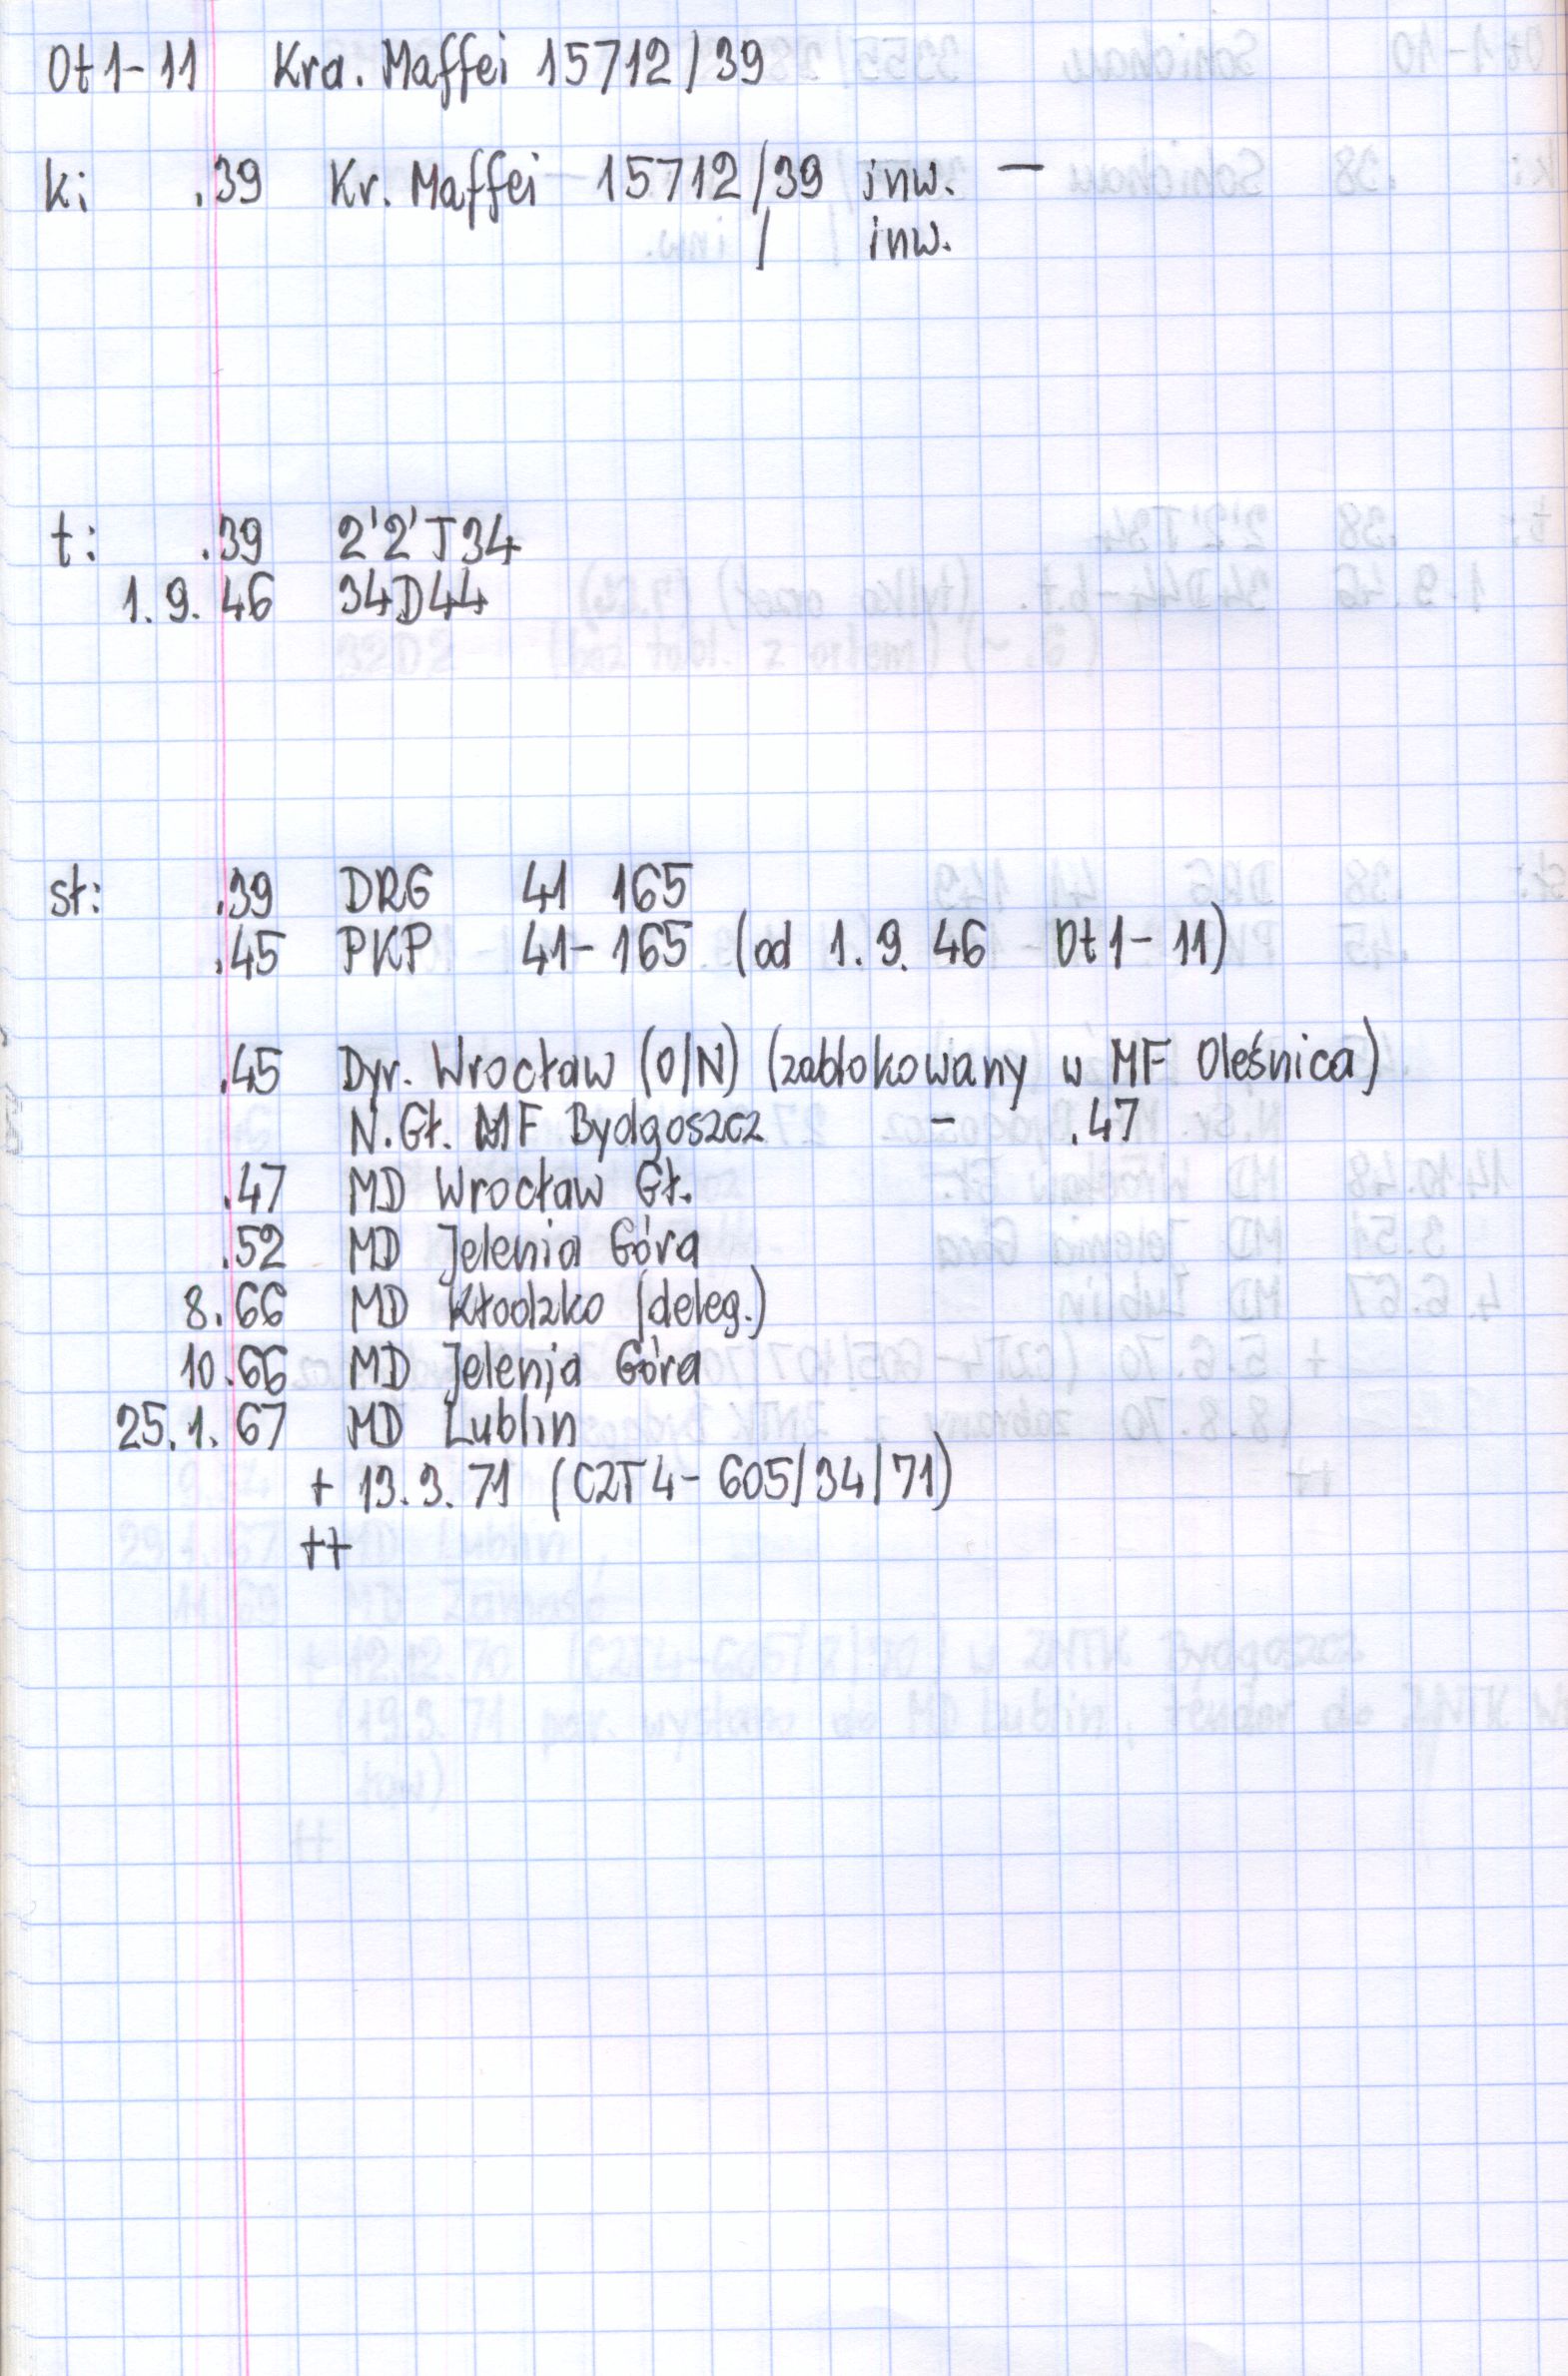 Ot1-11 Kra. Maffei 15712/39
k: .39 Kr. Maffei 15712/39 inw. —
/ inw.
t: .39 2'2'T34
1.9.46 34D44
st: .39 DRG 41 165
.45 PKP 41-165 (od 1.9.46 Ot1-11)
.45 Dyr. Wrocław (O/N) (zablokowany w MF Oleśnica)
N.Gł. MF Bydgoszcz - .47
.47 MD Wrocław Gł.
.52 MD Jelenia Góra
8.66 MD Kłodzko (deleg.)
10.66 MD Jelenia Góra
25.1.67 MD Lublin
+ 13.3.71 (C2T4-605/34/71)
++